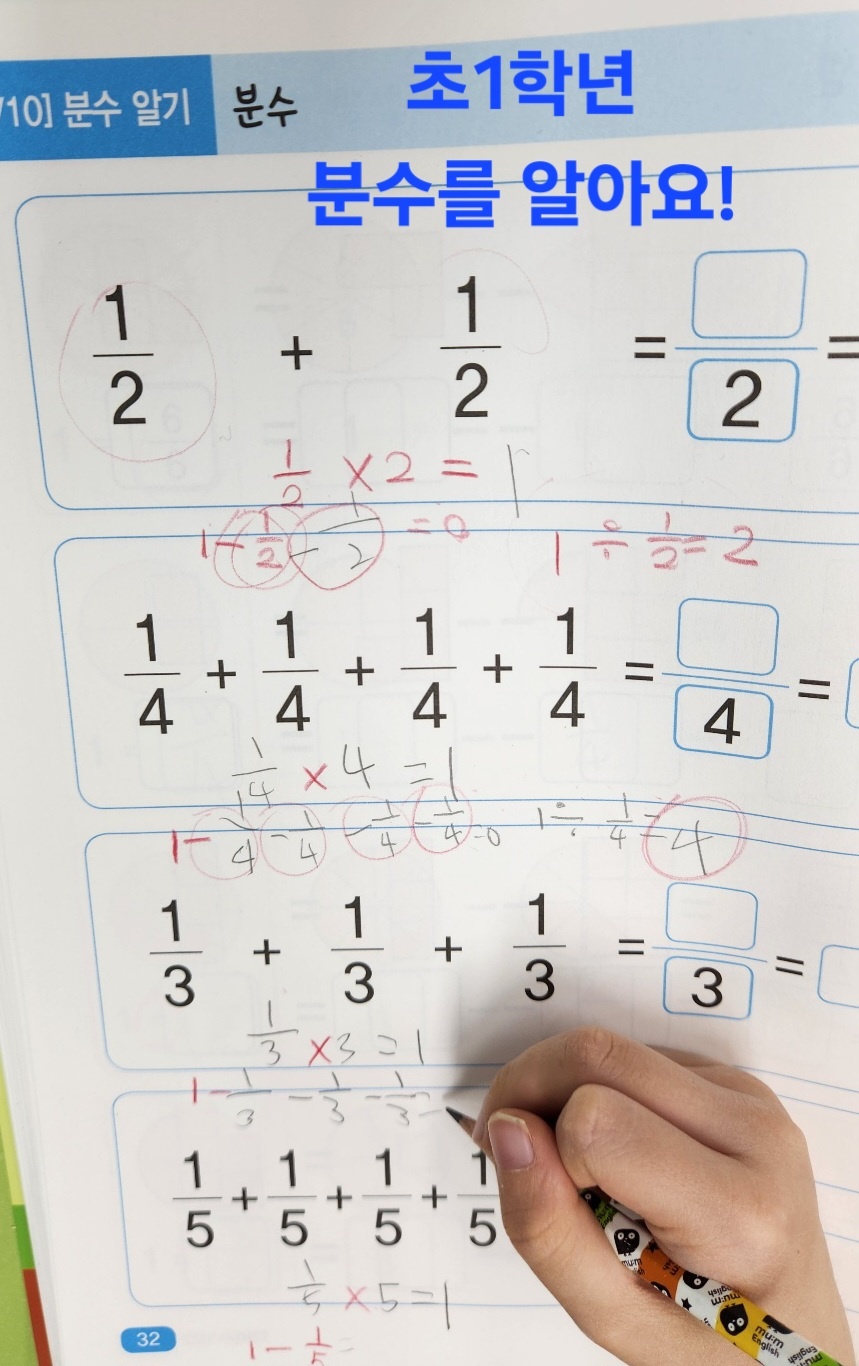 /10] 분수 알기 분수 초1학년
분수를 알아요!
1/2 + 1/2 = □/2 =
1/2 × 2 = 1
1 - 1/2 - 1/2 = 0 1 ÷ 1/2 = 2
1/4 + 1/4 + 1/4 + 1/4 = □/4 =
1/4 × 4 = 1
1 - 1/4 - 1/4 - 1/4 - 1/4 = 0 1 ÷ 1/4 = 4
1/3 + 1/3 + 1/3 = □/3 =
1/3 × 3 = 1
1 - 1/3 - 1/3 - 1/3 =
1/5 + 1/5 + 1/5 + 1/5
1/5 × 5 = 1
32 1 - 1/5 =
mu:m English